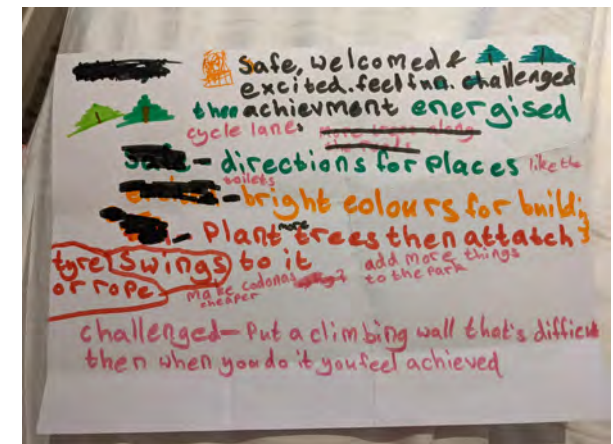 safe, welcomed &
excited. feel fun. challenged
then achievment energised
cycle lanes more trees along
the roads
safe - directions for places like the
toilets
- bright colours for buildings
- Plant more trees then attatch
tyre swings to it
or rope
add more things
to the park
make codonas
cheaper
challenged - Put a climbing wall that's difficult
then when you do it you feel achieved